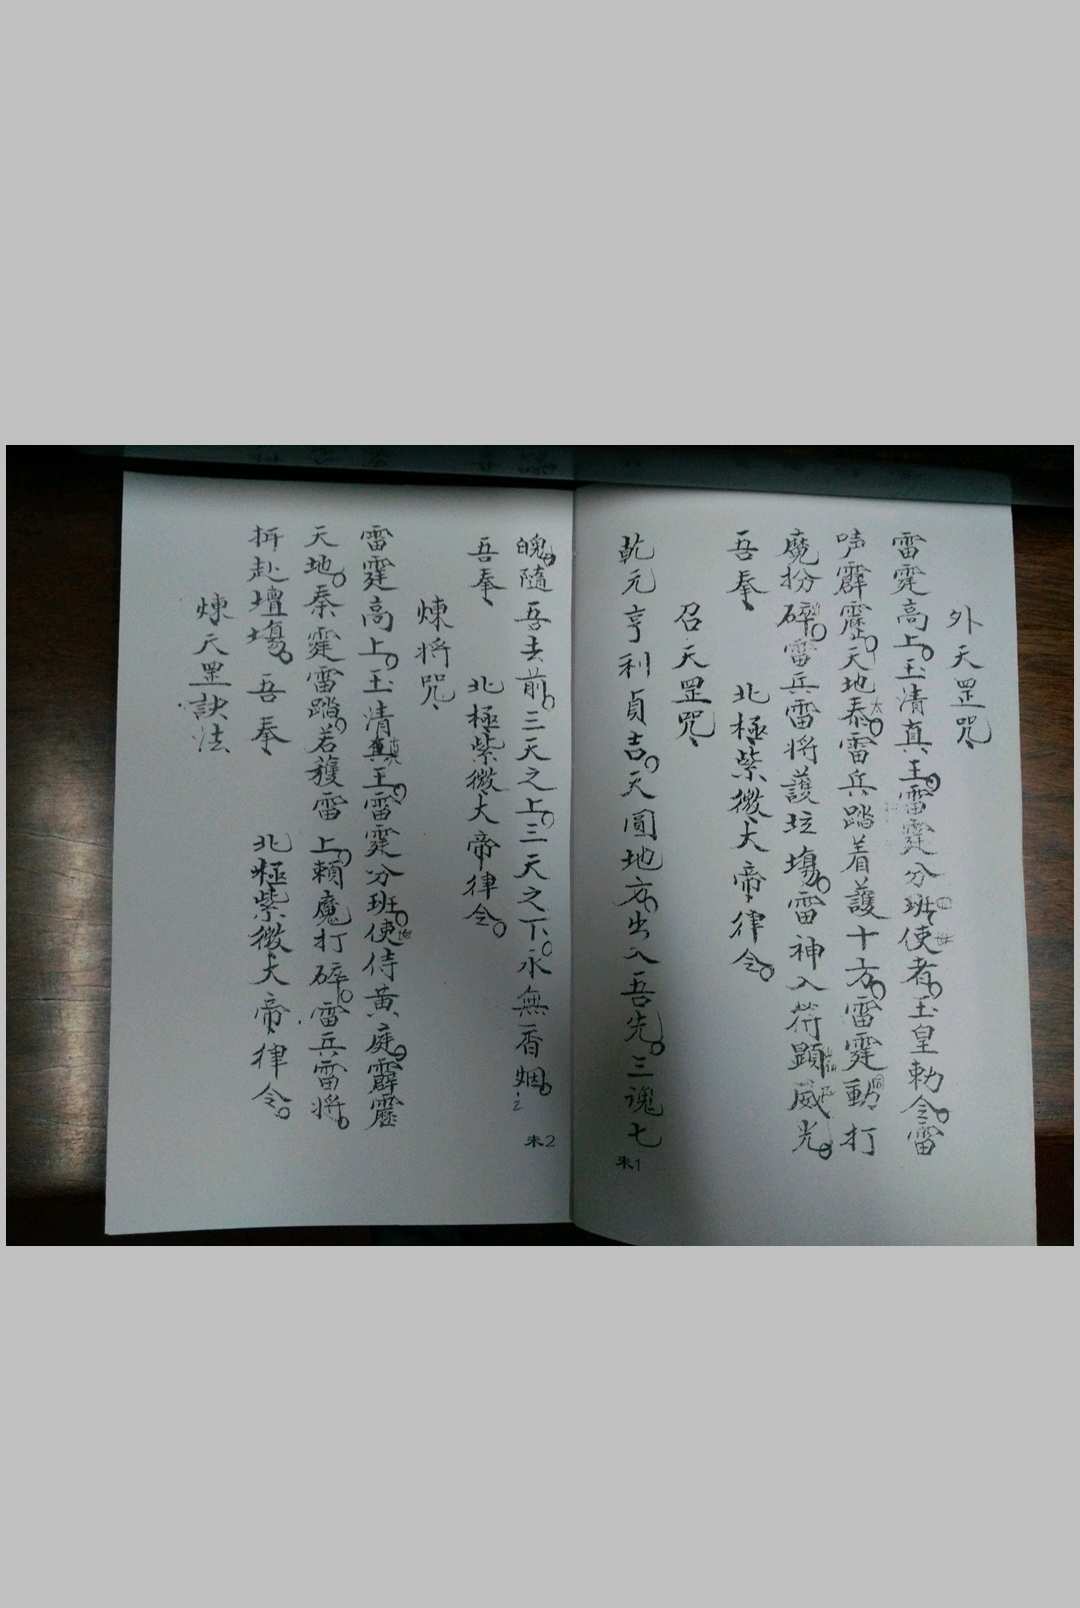 外天罡咒
雷霆高上。玉清真王。雷霆分班使者。玉皇勅令。雷
声霹靂。天地泰。雷兵踏着護十方。雷霆動打
魔扮碎。雷兵雷将護坛塲。雷神入符顕威光。
吾奉 北極紫微大帝律令。
召天罡咒
乾元亨利貞吉。天圓地方。出入吾先。三魂七
朱1
魄。隨吾去前。三天之上。三天之下。永無香烟。
朱2
吾奉 北極紫微大帝律令。
煉将咒
雷霆高上。玉清真王。雷霆分班。使侍黃庭。霹靂
天地。奏霆雷踏。若䕶雷上。賴魔打碎。雷兵雷将。
拼赴壇塲。吾奉 北極紫微大帝律令。
煉天罡訣法